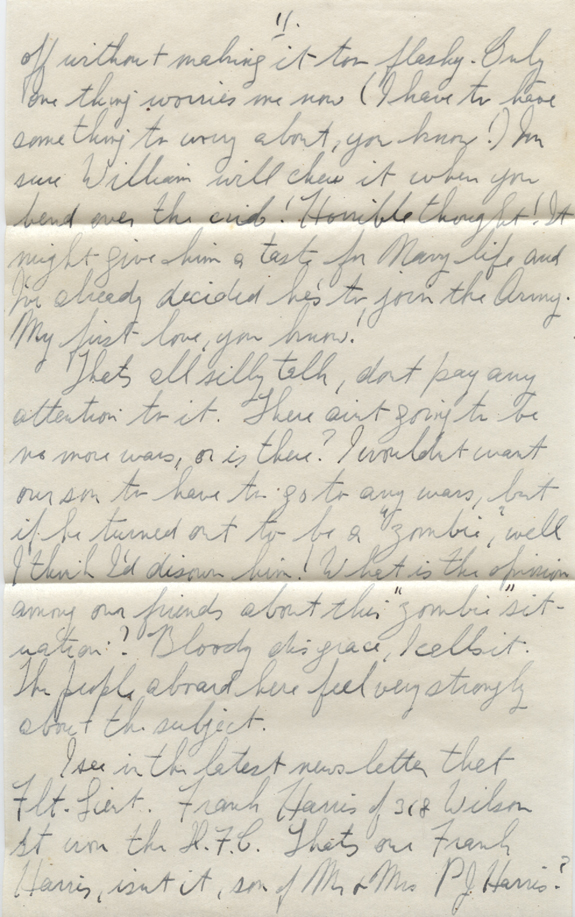 11.
off without making it too flashy. Only
one thing worries me now (I have to have
something to worry about, you know!) I'm
sure William will chew it when you
bend over the crib! Horrible thought! It
might give him a taste for Navy life and
I've already decided he's to join the Army.
My first love, you know!
Thats all silly talk, dont pay any
attention to it. There aint going to be
no more wars, or is there? I wouldnt want
our son to have to go to any wars, but
if he turned out to be a "zombie", well
I think I'd disown him! What is the opinion
among our friends about this "zombie" sit-
uation? Bloody disgrace, I calls it.
The people aboard here feel very strongly
about the subject.
I see in the latest news letter that
Flt. Lieut. Frank Harris of 368 Wilson
St won the D.F.C. Thats our Frank
Harris, isnt it, son of Mr & Mrs P.J. Harris?